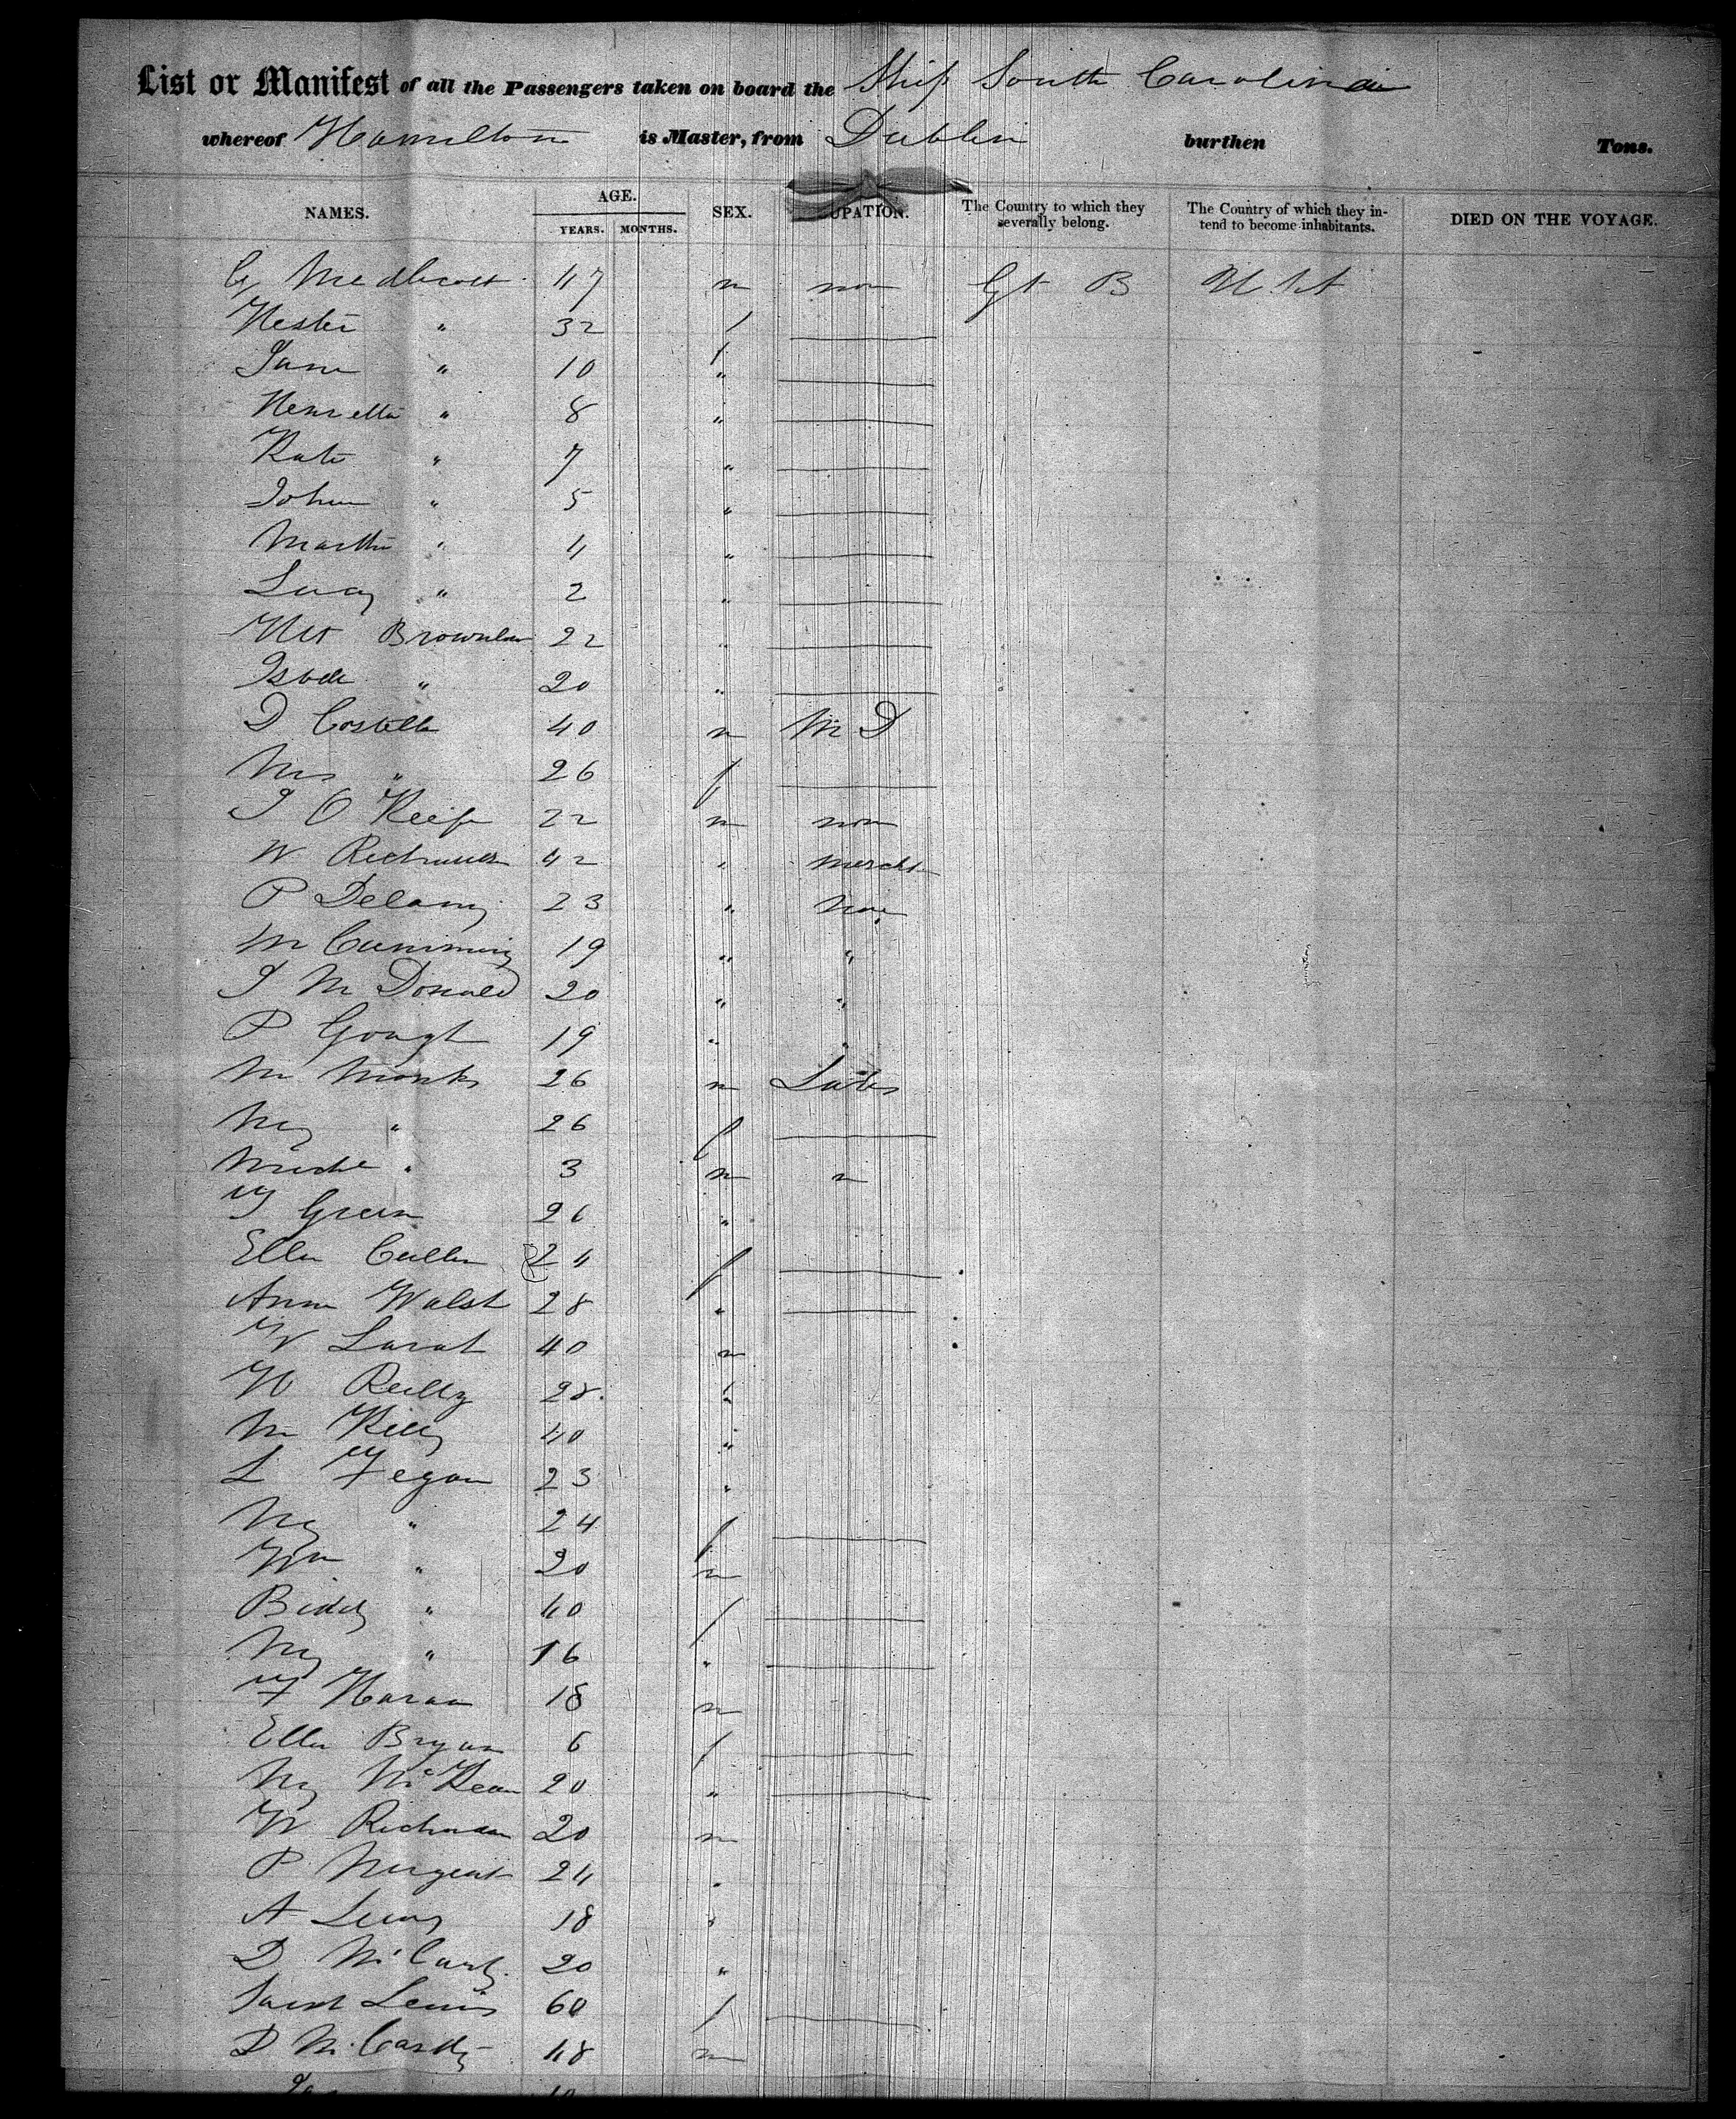 List or Manifest of all the Passengers taken on board the Ship South Carolina
whereof Hamilton is Master, from Dublin burthen Tons.
NAMES. AGE. YEARS. MONTHS. SEX. OCCUPATION. The Country to which they severally belong. The Country of which they intend to become inhabitants. DIED ON THE VOYAGE.
G Medlicott 47 m non Gt B U St
Hester " 32 f
Jane " 10 "
Henrietta " 8 "
Kate " 7 "
John " 5 "
Martha " 4 "
Lucy " 2 "
Brownlow 22 "
20 "
D Costello 40 m M D
Mrs " 26 f
J O Keefe 22 m non
W 42 " mercht
P Delany 23 " non
M Cumming 19 " "
J Mc Donald 20 " "
P Gough 19 " "
M Monks 26 m
My " 26 f
Miche " 3 m
J Green 26 "
Ellen Cullen 24 f
Anne Walsh 28 "
40 m
Reilly 28 "
M Kelly 40 "
L Fegan 23 "
My " 24 f
Wm " 20 m
Biddy " 40 f
My " 16 "
F 18 m
Ellen Bryan 6 f
My McKean 20 "
W 20 m
P Nugent 24 "
A 18 "
D McCarty 20 "
Lewis 60 f
D McCarthy 48 m